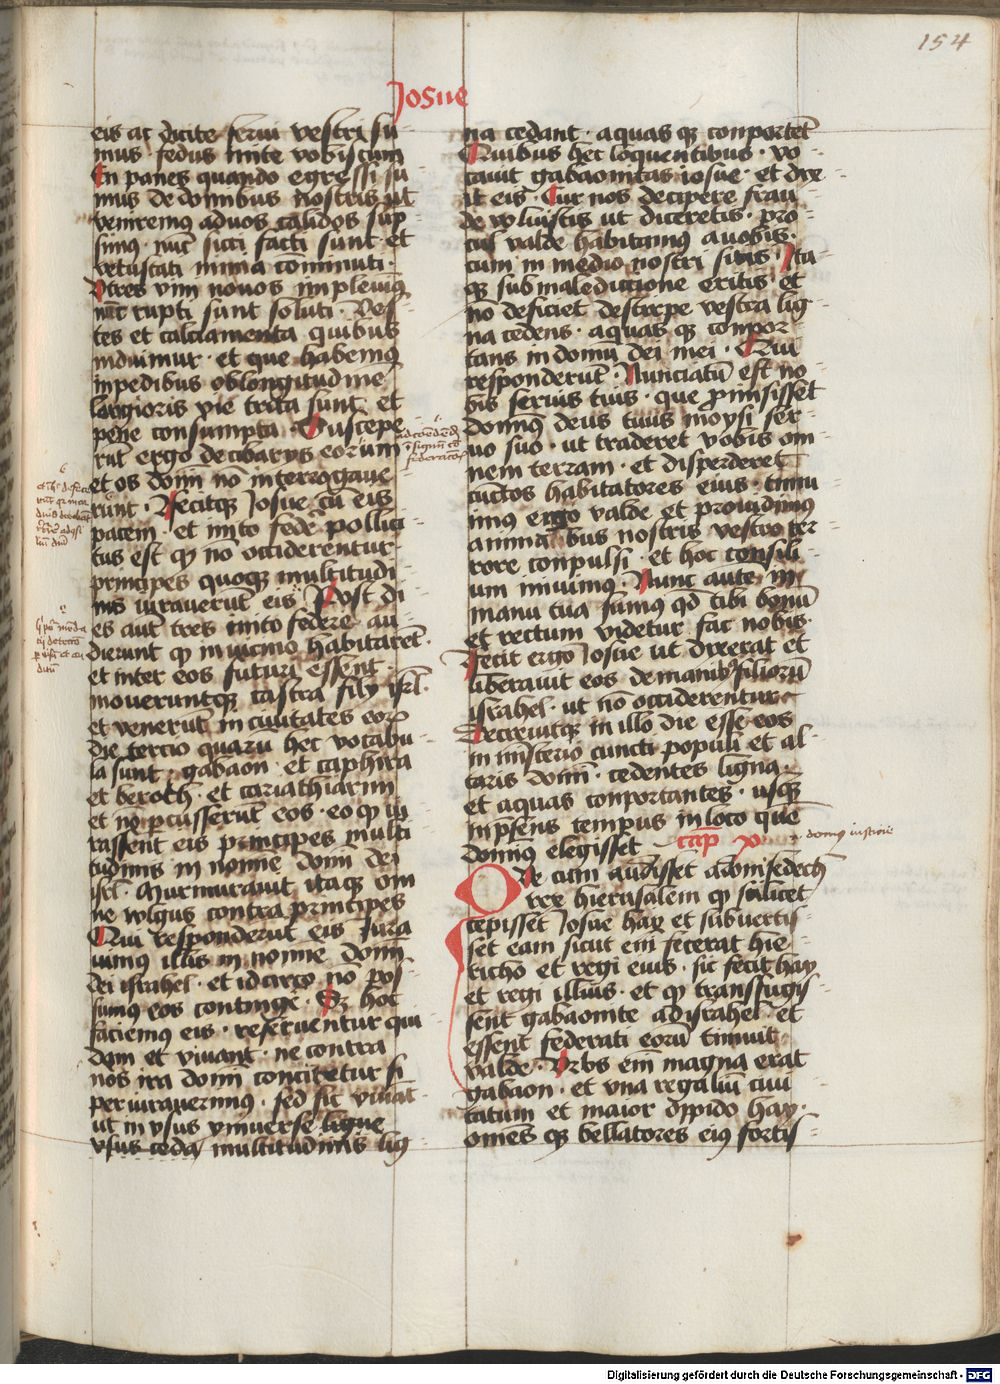 154
Josue
eis ac dicite serui vestri su-
mus · fedus inite vobiscum
En panes quando egressi su-
mus de domibus nostris ut
veniremus ad uos calidos sup-
simus · nunc sicci facti sunt et
vetustati nimia cominuti ·
Vtres vini nouos impleuimus
nunc rupti sunt soluti · Ves-
tes et calciamenta quibus
induimur · et que habemus
in pedibus ob longitudinē
longioris vie trita sunt et
pene consumpta · Suscepe-
rūt ergo de cibarijs eorum
et os domi nō interrogaue-
runt · Fecitq Josue cū eis
pacem · et inito federe pollici-
tus est q nō occiderentur ·
principes quoq multitudi-
nis iurauerūt eis · Post di-
es autē tres inito federe au-
dierunt q in uicino habitarēt ·
et inter eos futuri essent ·
moueruntq castra filij isrl ·
et venerūt in ciuitates eorū
die tercio quarū hec vocabu-
la sunt · gabaon · et caphira
et beroth · et cariathiarim
et nō percusserūt eos · eo q iu-
rassent eis principes multi-
tudinis in nomine domī dei
isrl · Murmurauit itaq om-
ne volgus contra principes
Qui responderūt eis Jura-
uimus illis in nomine domī
dei israhel · et idcirco nō pos-
sumus eos contingere · Sz hoc
faciemus eis · reseruentur qui-
dem et viuant · ne contra
nos ira domī concitetur si
periurauerimus · sed sic viuāt
ut in vsus vniuerse ligne
vsus cedāt multitudinis lig-
na cedant · aquas q conportēt
Quibus hec loquentibus · vo-
cauit gabaonitas iosue · et dix-
it eis · Cur nos decipere frau-
de voluistis ut diceretis · pro-
cul valde habitamus a uobis ·
cum in medio nostri sitis · Ita-
q sub maledictione eritis · et
nō deficiet de stirpe vestra lig-
na cedens · aquas q conpor-
tans in domū dei mei · Qui
responderūt · Nunciatū est no-
bis seruis tuis · que promisisset
dominus deus tuus moysi ser-
uo suo · ut traderet vobis om-
nem terram · et disperderet
cunctos habitatores eius · timu-
imus ergo valde et prouidimus
animabus nostris vestro ter-
rore conpulsi · et hoc consili-
um iniuimus · Nunc autē in
manu tua sumus qd tibi bonū
et rectum videtur fac nobis ·
Fecit ergo Josue ut dixerat et
liberauit eos de manibus filiorū
israhel · ut nō occiderentur
Decreuitq in illo die esse eos
in misterio cuncti populi et al-
taris domī · cedentes ligna ·
et aquas conportantes · usq
in presens tempus in loco quē
dominus elegisset cap x
Que cum audisset adonisedech
rex hierusalem q scilicet
cepisset Josue hay et subuertis-
set eam sicut em fecerat hie-
richo et regi eius · sic fecit hay
et regi illius · et q transfugis-
sent gabaonite ad israhel et
essent federati eorū timuit
valde · Vrbs em magna erat
gabaon · et vna regaliū ciui-
tatum et maior oppido hay ·
omēs q bellatores eius fortis-
Digitalisierung gefördert durch die Deutsche Forschungsgemeinschaft - DFG